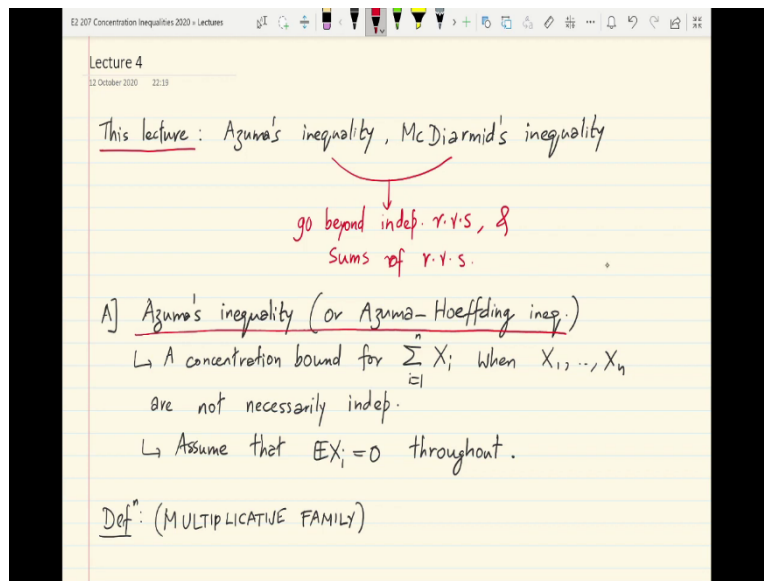 E2 207 Concentration Inequalities 2020 » Lectures
Lecture 4
12 October 2020 22:19
This lecture : Azuma's inequality, McDiarmid's inequality
go beyond indep. r.v.s, &
Sums of r.v.s.
A] Azuma's inequality (or Azuma-Hoeffding ineq.)
↳ A concentration bound for ∑_{i=1}^{n} X_i when X_1, .., X_n
are not necessarily indep.
↳ Assume that 𝔼X_i = 0 throughout.
Defⁿ: (MULTIPLICATIVE FAMILY)